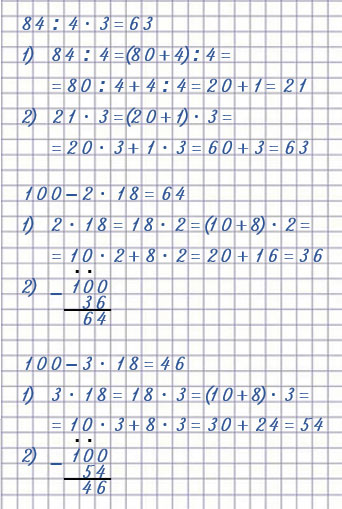 84 : 4 · 3 = 63
1) 84 : 4 = (80 + 4) : 4 =
= 80 : 4 + 4 : 4 = 20 + 1 = 21
2) 21 · 3 = (20 + 1) · 3 =
= 20 · 3 + 1 · 3 = 60 + 3 = 63
100 – 2 · 18 = 64
1) 2 · 18 = 18 · 2 = (10 + 8) · 2 =
= 10 · 2 + 8 · 2 = 20 + 16 = 36
2) – 100
36
64
100 – 3 · 18 = 46
1) 3 · 18 = 18 · 3 = (10 + 8) · 3 =
= 10 · 3 + 8 · 3 = 30 + 24 = 54
2) – 100
54
46